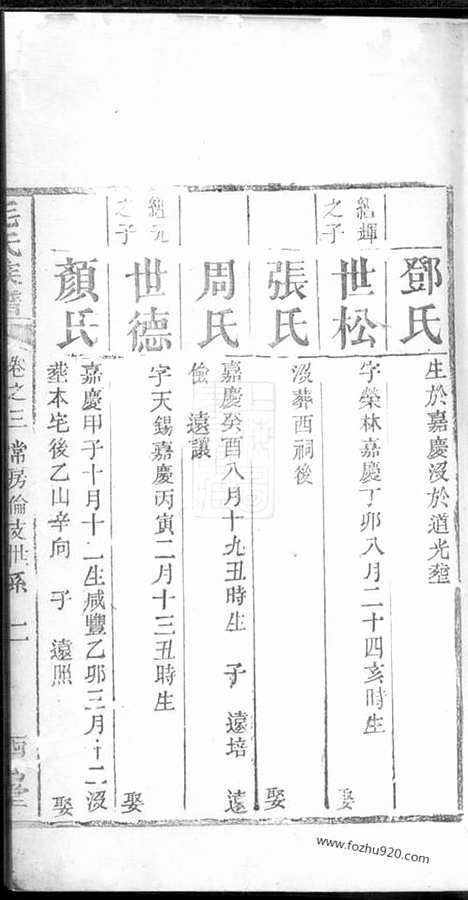 鄧氏
生於嘉慶沒於道光塟
紹輝
之子
世松
字榮林嘉慶丁卯八月二十四亥時生
娶
張氏
沒葬西祠後
娶
周氏
嘉慶癸酉八月十九丑時生 子 遠培 遠
儉 遠讓
紹元
之子
世德
字天錫嘉慶丙寅二月十三丑時生
娶
顏氏
嘉慶甲子十月十二生咸豐乙卯三月十二沒
塟本宅後乙山辛向 子 遠照
娶
毛氏族譜
卷之三 常房倫支世系 二
www.fozhu920.com